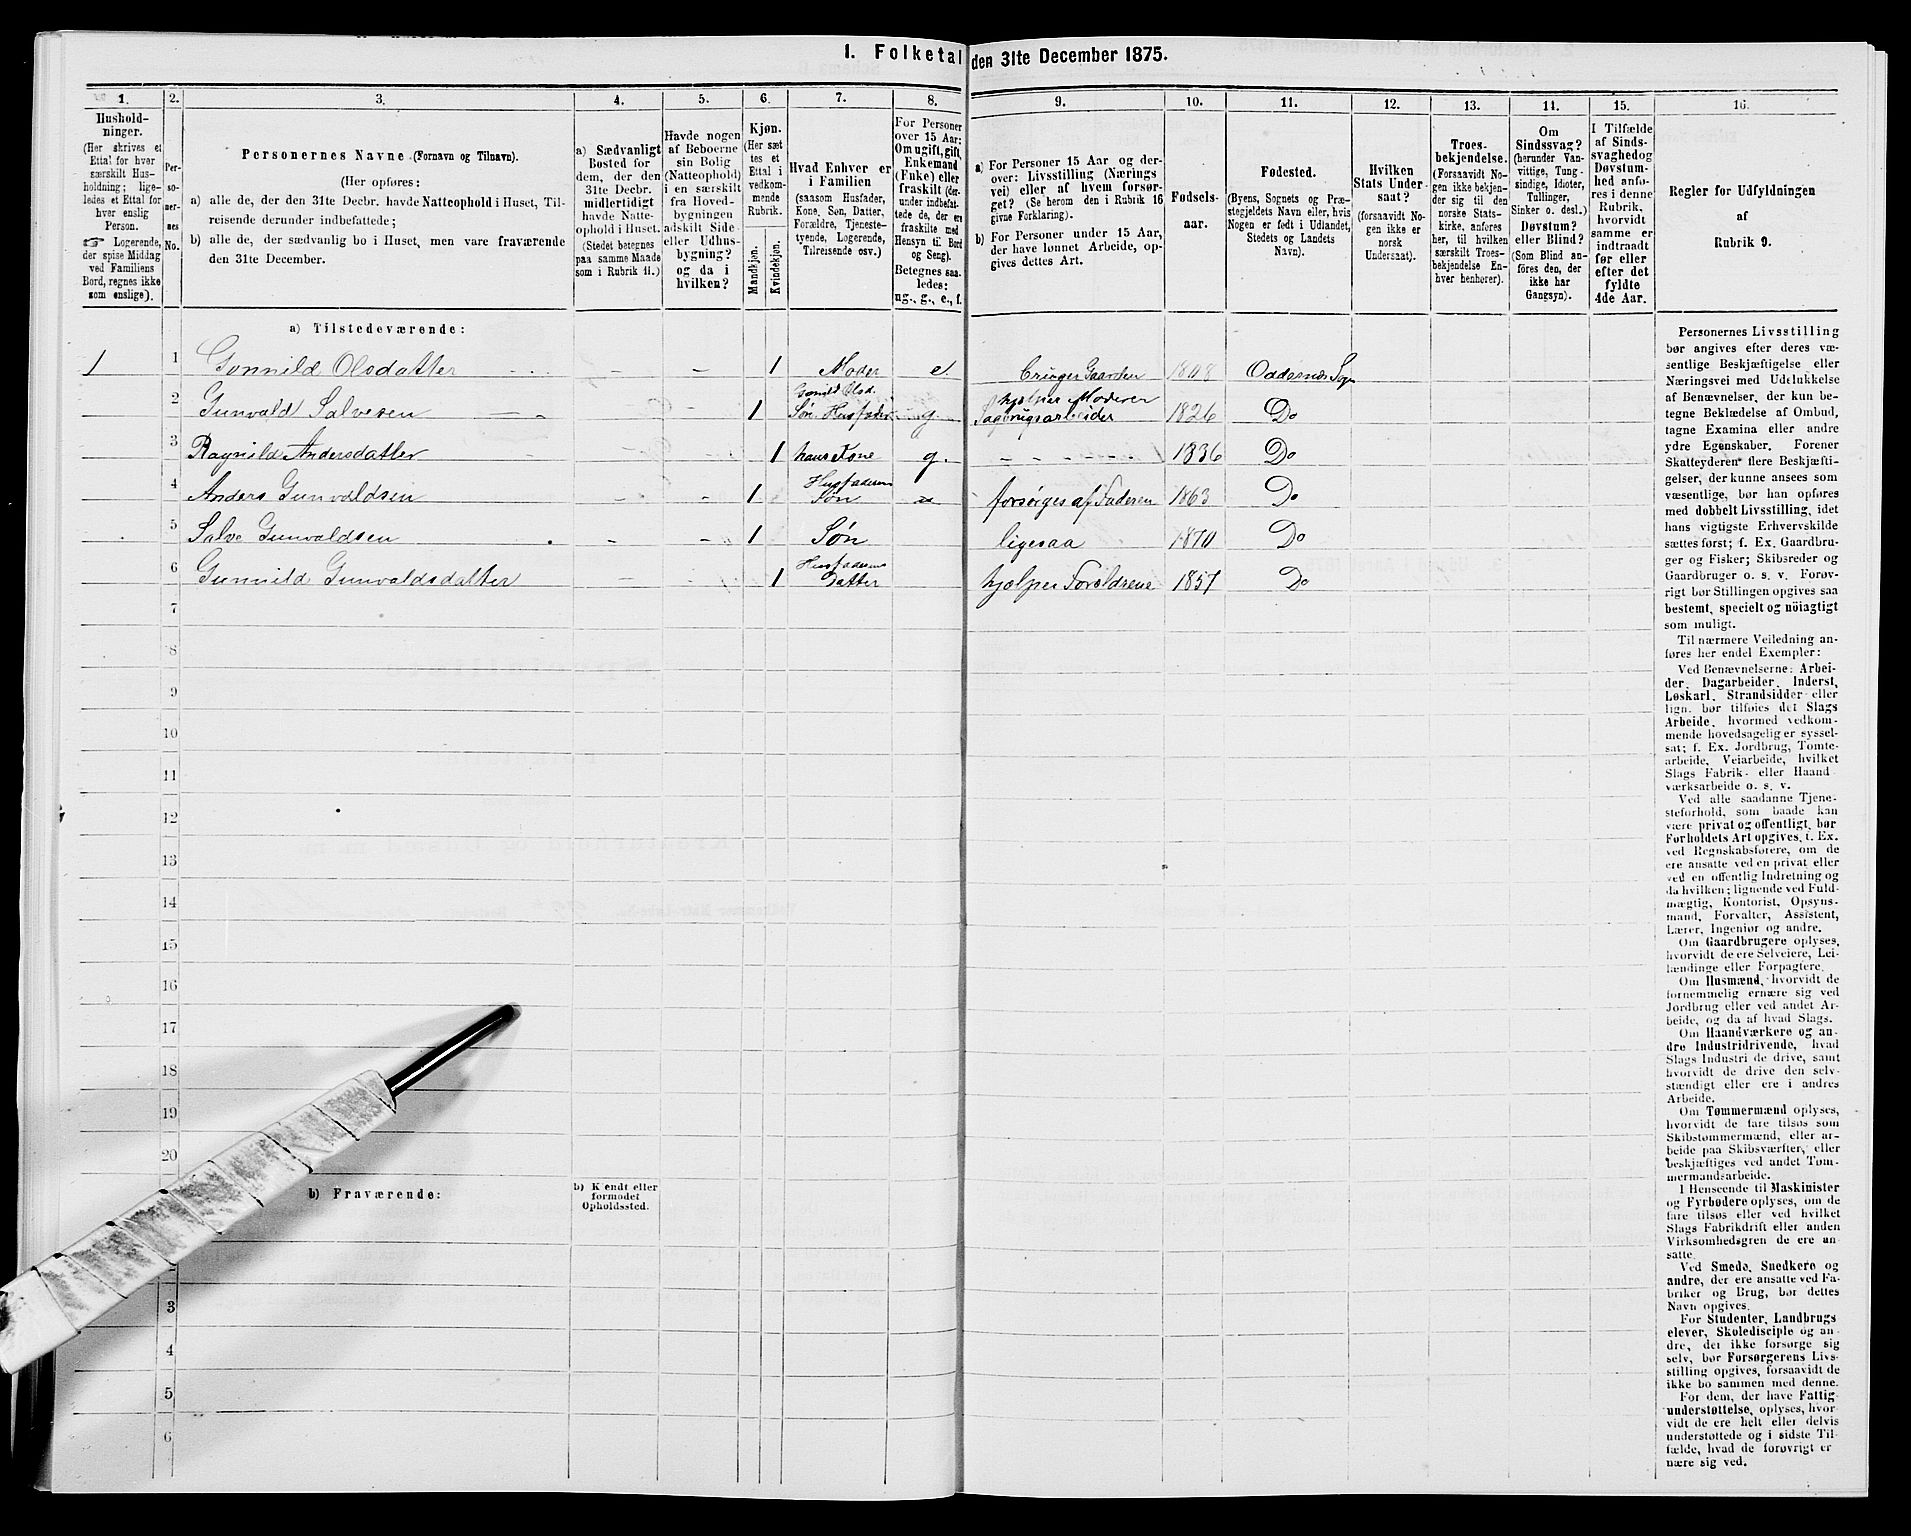 1. Folketal den 31te December 1875.
1.
2.
3.
4.
5.
6.
7.
8.
9.
10.
11.
12.
13.
14.
15.
16.
Hushold-
ninger.
(Her skrives et
Ettal for hver
særskilt Hus-
holdning; lige-
ledes et Ettal for
hver enslig
Person.
☞ Logerende,
der spise Middag
ved Familiens
Bord, regnes ikke
som enslige).
Per-
so-
ner-
nes
No.
Personernes Navne (Fornavn og Tilnavn).
(Her opføres:
a) alle de, der den 31te Decbr. havde Natteophold i Huset, Til-
reisende derunder indbefattede;
b) alle de, der sædvanlig bo i Huset, men vare fraværende
den 31te December.
a) Sædvanligt
Bosted for
dem, der den
31te Decbr.
midlertidigt
havde Natte-
ophold i Huset.
(Stedet betegnes
paa samme Maade
som i Rubrik 11.)
Havde nogen
af Beboerne
sin Bolig
(Natteophold)
i en særskilt
fra Hoved-
bygningen
adskilt Side-
eller Udhus-
bygning?
og da i
hvilken?
Kjøn.
(Her sæt-
tes et
Ettal i
vedkom-
mende
Rubrik.
Mandkjøn.
Kvindekjøn.
Hvad Enhver er
i Familien
(saasom Husfader,
Kone, Søn, Datter,
Forældre, Tjeneste-
tyende, Logerende,
Tilreisende osv.)
For Personer
over 15 Aar:
Om ugift, gift,
Enkemand
(Enke) eller
fraskilt (der-
under indbefat-
tede de, der ere
fraskilte med
Hensyn til Bord
og Seng).
Betegnes saa-
ledes:
ug., g., e., f.
a) For Personer 15 Aar og der-
over: Livsstilling (Nærings-
vei) eller af hvem forsør-
get? (Se herom den i Rubrik 16
givne Forklaring).
b) For Personer under 15 Aar,
der have lønnet Arbeide, op-
gives dettes Art.
Fødsels-
aar.
Fødested.
(Byens, Sognets og Præ-
stegjeldets Navn eller, hvis
Nogen er født i Udlandet,
Stedets og Landets
Navn).
Hvilken
Stats Under-
saat?
(forsaavidt No-
gen ikke er
norsk
Undersaat).
Troes-
bekjendelse.
(Forsaavidt No-
gen ikke bekjen-
der sig til den
norske Stats-
kirke, anføres
her, til hvilken
særskilt Troes-
bekjendelse En-
hver henhører).
Om
Sindssvag?
(herunder Van-
vittige, Tung-
sindige, Idioter,
Tullinger,
Sinker o. desl.)
Døvstum?
eller Blind?
(Som Blind an-
føres den, der
ikke har
Gangsyn).
I Tilfælde
af Sinds-
svaghed og
Døvstum-
hed anfø-
res i denne
Rubrik,
hvorvidt
samme er
indtraadt
før eller
efter det
fyldte
4de Aar.
Regler for Udfyldningen
af
Rubrik 9.
a) Tilstedeværende:
1 1 Gunnild Olsdatter - - 1 Moder e. bringer Gaarden 1808 Oddernæs Sogn
2 Gunvald Salvesen 1 Gunild Olsd. Søn. Husfader g hjelper Moderen Sagbrugsarbeider 1826 Do
3 Ragnild Andersdatter - - 1 hans Kone g. - - - - - - 1836 Do
4 Anders Gunvaldsen - - 1 Husfaderens Søn forsørges af Faderen 1863 Do
5 Salve Gunvaldsen - - 1 Søn ligesaa 1870 Do
6 Gunnild Gunvaldsdatter - - 1 Husfaderens Datter hjælper Forældrene 1857 Do
7
8
9
10
11
12
13
14
15
16
17
18
19
20
b) Fraværende:
b) Kjendt eller
formodet
Opholdssted.
3
4
5
6
Personernes Livsstilling
bør angives efter deres væ-
sentlige Beskjæftigelse eller
Næringsvei med Udelukkelse
af Benævnelser, der kun be-
tegne Beklædelse af Ombud,
tagne Examina eller andre
ydre Egenskaber. Forener
Skatteyderen flere Beskjæfti-
gelser, der kunne ansees som
væsentlige, bør han opføres
med dobbelt Livsstilling, idet
hans vigtigste Erhvervskilde
sættes først; f. Ex. Gaardbru-
ger og Fisker; Skibsreder og
Gaardbruger o. s. v. Forøv-
rigt bør Stillingen opgives saa
bestemt, specielt og nöiagtigt
som muligt.
Til nærmere Veiledning an-
føres her endel Exempler:
Ved Benævnelserne: Arbei-
der, Dagarbeider, Inderst,
Løskarl, Strandsidder eller
lign. bør tilføies det Slags
Arbeide, hvormed vedkom-
mende hovedsagelig er syssel-
sat; f. Ex. Jordbrug, Tomte-
arbeide, Veiarbeide, hvilket
Slags Fabrik- eller Haand-
værksarbeide o. s. v.
Ved alle saadanne Tjene-
steforhold, som baade kan
være privat og offentligt, bør
Forholdets Art opgives, f. Ex.
ved Regnskabsførere, om de
ere ansatte ved en privat eller
ved en offentlig Indretning og
da hvilken; lignende ved Fuld-
mægtig, Kontorist, Opsyns-
mand, Forvalter, Assistent,
Lærer, Ingeniør og andre.
Om Gaardbrugere oplyses,
hvorvidt de ere Selveiere, Lei-
lændinge eller Forpagtere.
Om Husmænd, hvorvidt de
fornemmelig ernære sig ved
Jordbrug eller ved andet Ar-
beide, og da af hvad Slags.
Om Haandværkere og an-
dre Industridrivende, hvad
Slags Industri de drive, samt
hvorvidt de drive den selv-
stændigt eller ere i andres
Arbeide.
Om Tømmermænd oplyses,
hvorvidt de fare tilsøs som
Skibstømmermænd, eller ar-
beide paa Skibsværfter, eller
beskjæftiges ved andet Tøm-
mermandsarbeide.
I Henseende til Maskinister
og Fyrbødere oplyses, om de
fare tilsøs eller ved hvilket
Slags Fabrikdrift eller anden
Virksomhedsgren de ere an-
satte.
Ved Smede, Snedkere og
andre, der ere ansatte ved Fa-
briker og Brug, bør dettes
Navn opgives.
For Studenter, Landbrugs-
elever, Skoledisciple og an-
dre, der ikke forsørge sig
selv, bør Forsørgerens Livs-
stilling opgives, forsaavidt de
ikke bo sammen med denne.
For dem, der have Fattig-
understøttelse, oplyses, hvor-
vidt de ere helt eller delvis
understøttede og i sidste Til-
fælde, hvad de forøvrigt er-
nære sig ved.